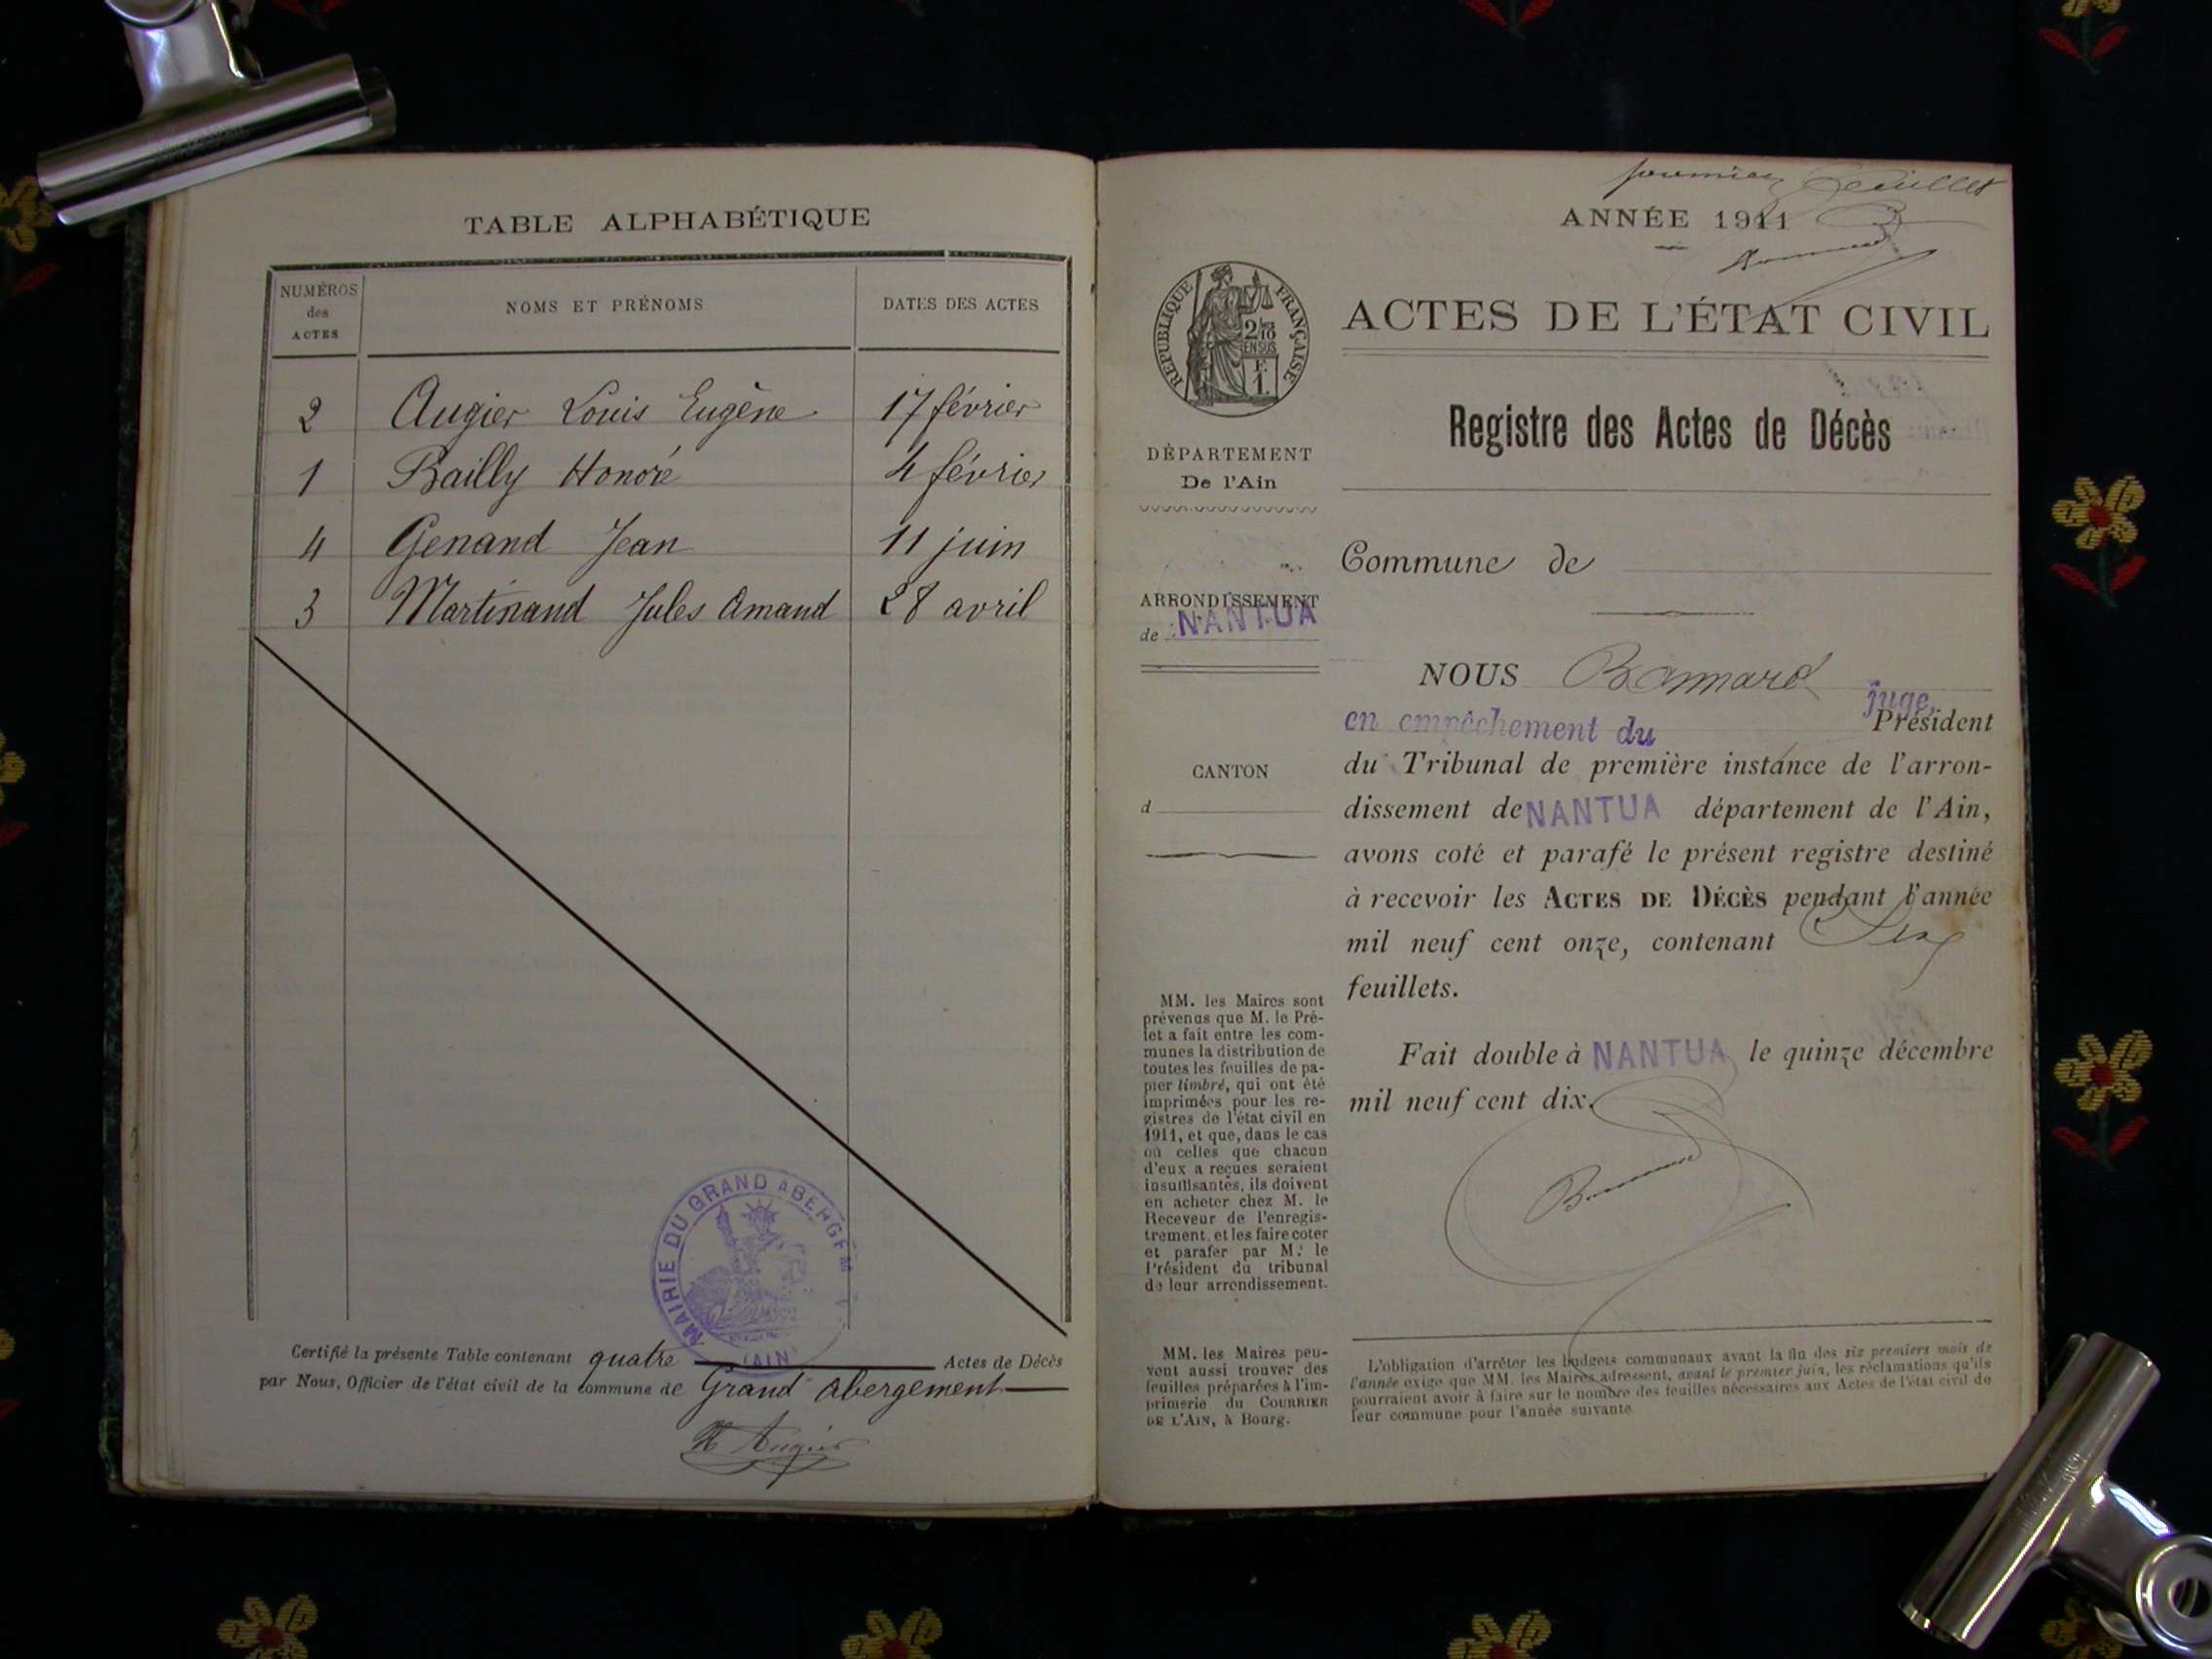 TABLE ALPHABÉTIQUE
NUMÉROS des ACTES
NOMS ET PRÉNOMS
DATES DES ACTES
2 Augier Louis Eugène 17 février
1 Bailly Honoré 4 février
4 Genand Jean 11 juin
3 Martinand Jules Amand 28 avril
MAIRIE DU GRAND ABERGEM
(AIN)
Certifié la présente Table contenant quatre Actes de Décès
par Nous, Officier de l'état civil de la commune de Grand Abergement
Augier
feuillet
ANNÉE 1911
RÉPUBLIQUE FRANÇAISE
EN SUS
ACTES DE L'ÉTAT CIVIL
Registre des Actes de Décès
DÉPARTEMENT
De l'Ain
Commune de
ARRONDISSEMENT
de NANTUA
CANTON
d
NOUS
juge,
en empêchement du Président
du Tribunal de première instance de l'arron-
dissement de NANTUA département de l'Ain,
avons coté et parafé le présent registre destiné
à recevoir les ACTES DE DÉCÈS pendant l'année
mil neuf cent onze, contenant
feuillets.
Fait double à NANTUA le quinze décembre
mil neuf cent dix.
MM. les Maires sont
prévenus que M. le Pré-
fet a fait entre les com-
munes la distribution de
toutes les feuilles de pa-
pier timbré, qui ont été
imprimées pour les re-
gistres de l'état civil en
1911, et que, dans le cas
où celles que chacun
d'eux a reçues seraient
insuffisantes, ils doivent
en acheter chez M. le
Receveur de l'enregis-
trement, et les faire coter
et parafer par M. le
Président du tribunal
de leur arrondissement.
MM. les Maires peu-
vent aussi trouver des
feuilles préparées à l'im-
primerie du COURRIER
DE L'AIN, à Bourg.
L'obligation d'arrêter les budgets communaux avant la fin des six premiers mois de
l'année exige que MM. les Maires adressent, avant le premier juin, les réclamations qu'ils
pourraient avoir à faire sur le nombre des feuilles nécessaires aux Actes de l'état civil de
leur commune pour l'année suivante